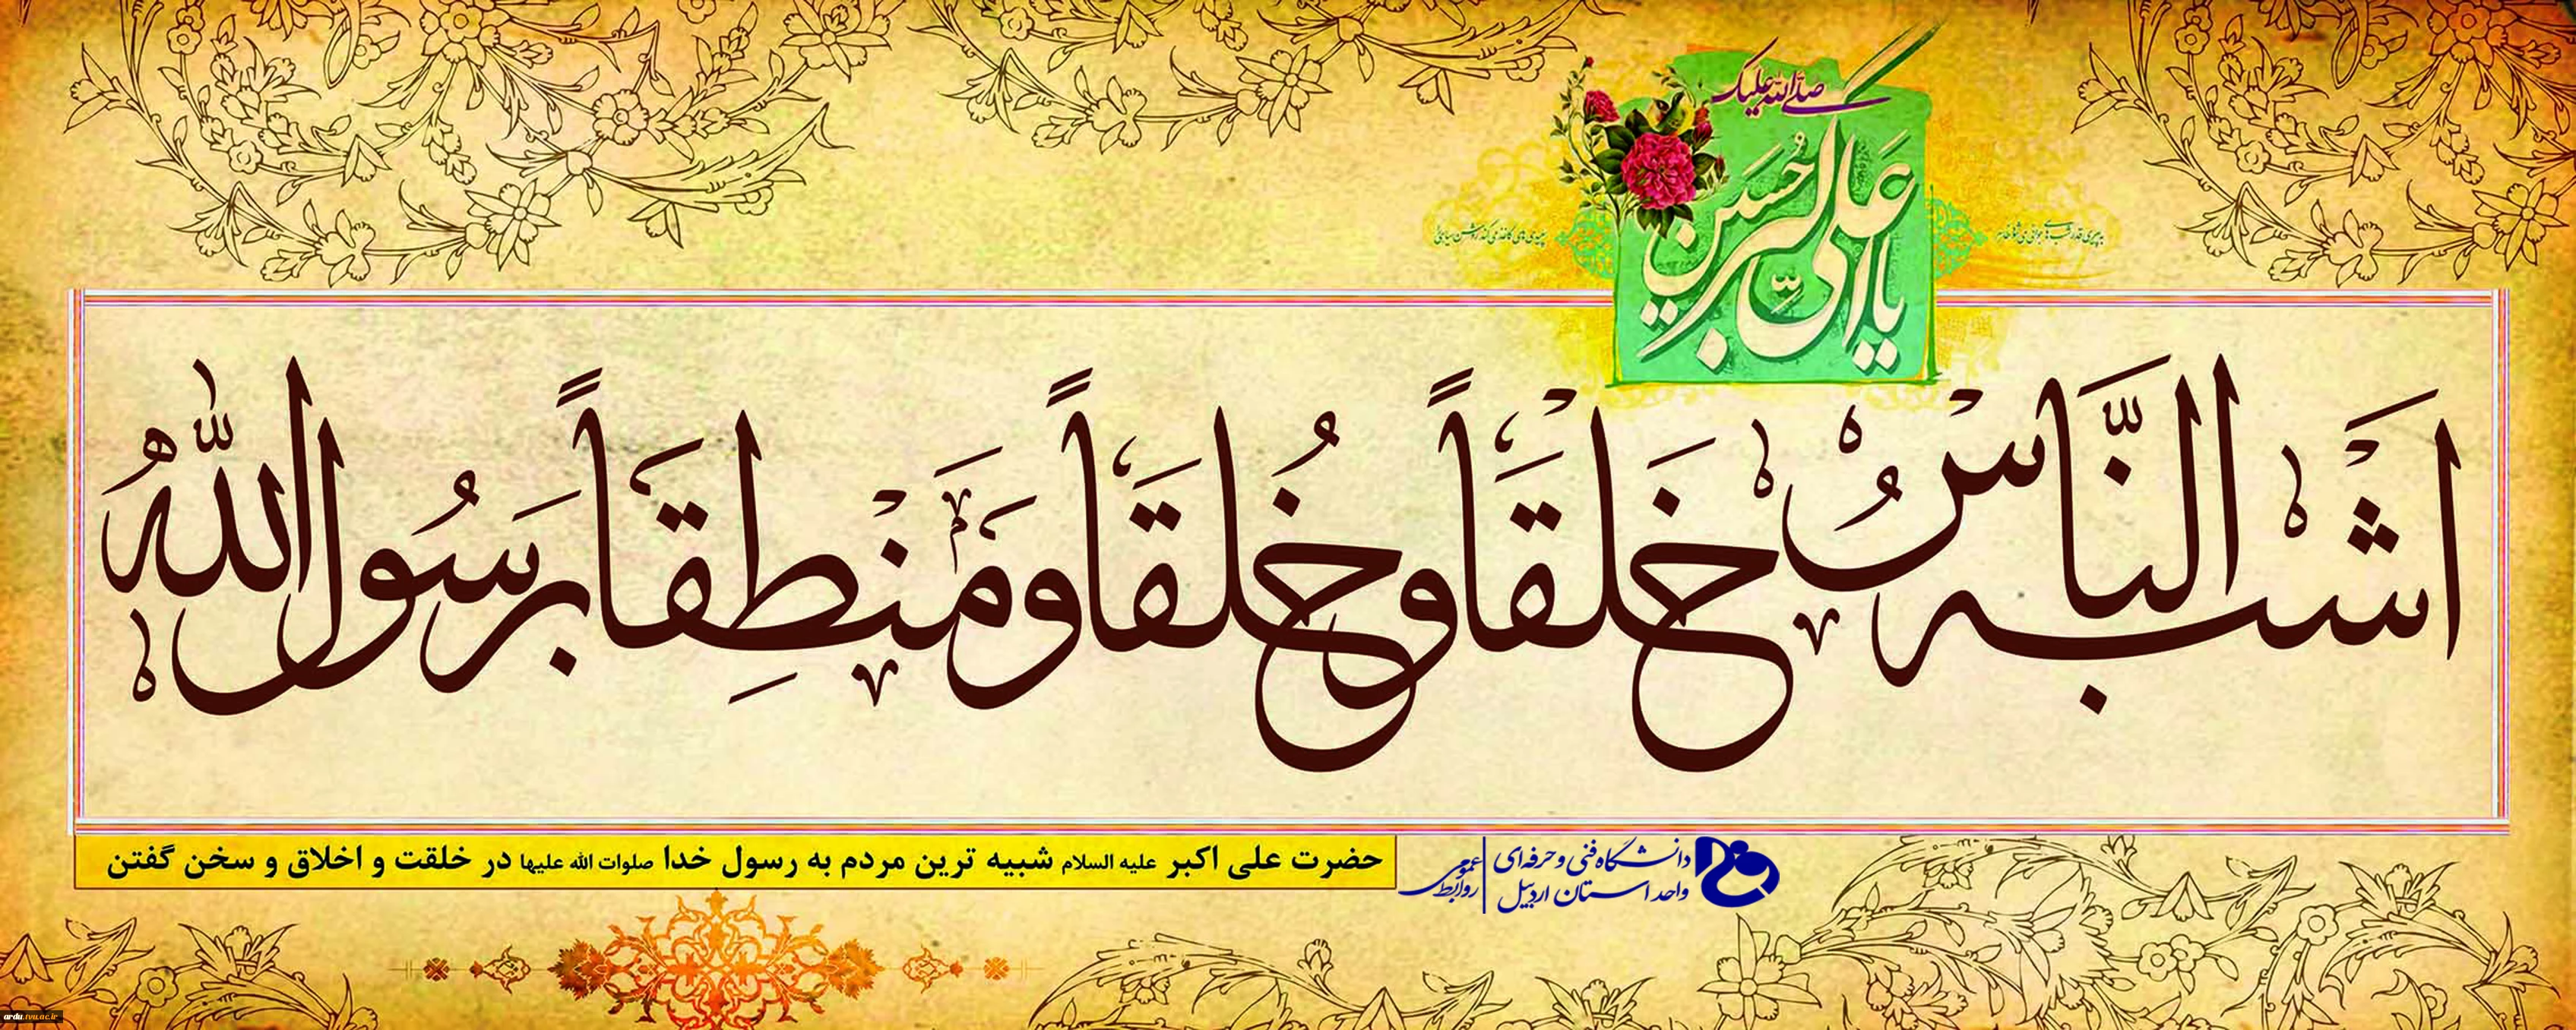 صلی الله علیک
یا علی اکبر حسین
اشبه الناس خلقاً و خلقاً و منطقاً برسول الله
حضرت علی اکبر علیه السلام شبیه ترین مردم به رسول خدا صلوات الله علیها در خلقت و اخلاق و سخن گفتن
دانشگاه فنی و حرفه‌ای
واحد استان اردبیل
روابط عمومی
ardu.tvu.ac.ir